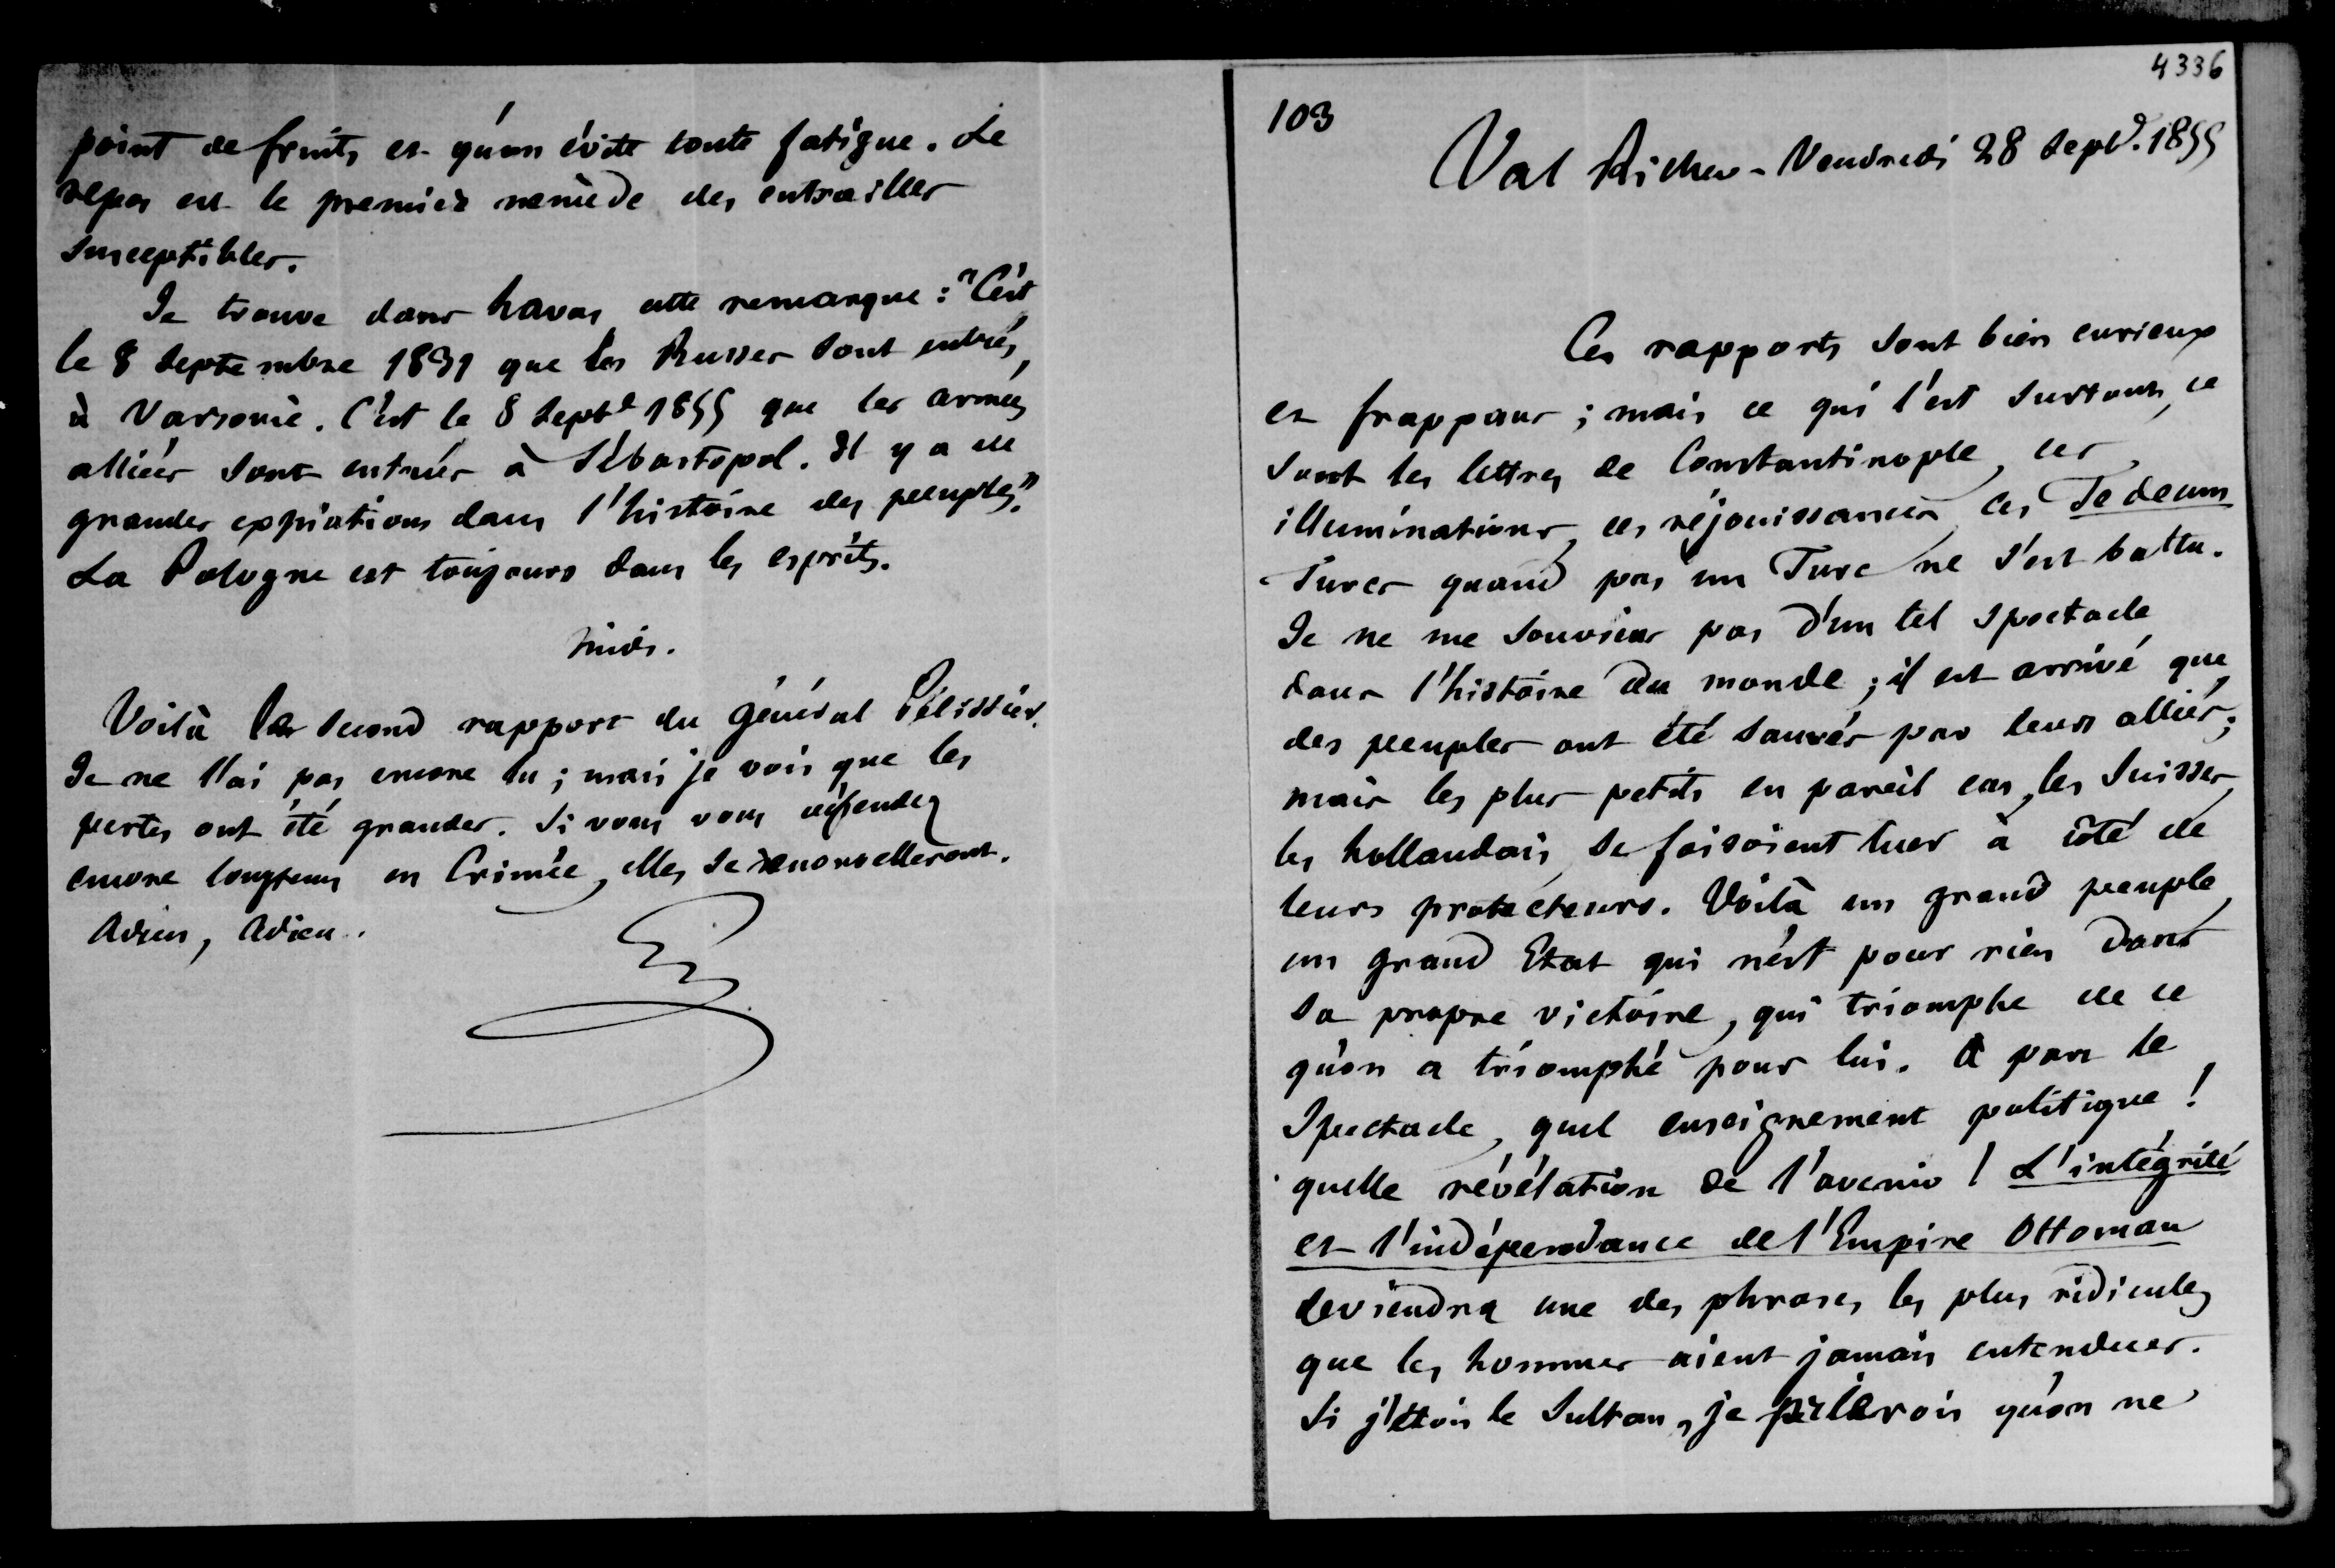 point de fruits et qu'on évite toute fatigue. Le
repos est le premier remède des entrailles
susceptibles.
Je trouve dans havas cette remarque : "C'est
le 8 Septembre 1831 que les Russes sont entrés
à Varsovie. C'est le 8 Septe 1855 que les armées
alliées sont entrées à Sébastopol. Il y a de
grandes expiations dans l'histoire des peuples."
La Pologne est toujours dans les esprits.
Midi.
Voilà le second rapport du général Pélissier.
Je ne l'ai pas encore lu ; mais je vois que les
pertes ont été grandes. Si vous vous défendez
encore longtems en Crimée, elles se renouvelleront.
Adieu, Adieu.
4336
103
Val Richer - Vendredi 28 Septe. 1855
Ces rapports sont bien curieux
et frappans ; mais ce qui l'est surtout, ce
sont les lettres de Constantinople, ces
illuminations, ces réjouissances, ces Te deum
Turcs quand pas un Turc ne s'est battu.
Je ne me souviens pas d'un tel spectacle
dans l'histoire du monde ; il est arrivé que
des peuples ont été sauvés par leurs alliés ;
mais les plus petits en pareil cas, les Suisses,
les hollandais, se faisoient tuer à côté de
leurs protecteurs. Voilà un grand peuple,
un grand Etat qui n'est pour rien dans
sa propre victoire, qui triomphe de ce
qu'on a triomphé pour lui. A part le
Spectacle, quel enseignement politique !
quelle révélation de l'avenir ! L'intégrité
et l'indépendance de l'Empire Ottoman
deviendra une des phrases les plus ridicules
que les hommes aient jamais entendues.
Si j'étois le Sultan, je qu'on ne